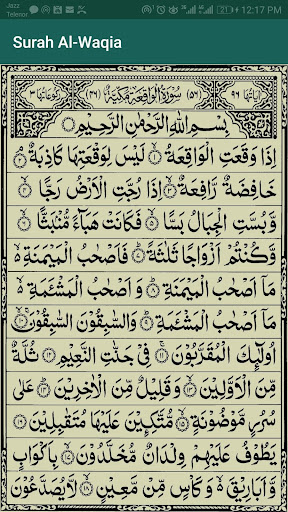 Jazz
Telenor
12:17 PM
Surah Al-Waqia
اٰيَاتُهَا ٩٦ (٥٦) سُوْرَةُ الْوَاقِعَةِ مَكِّيَّةٌ (٤٦) رُكُوْعَاتُهَا ٣
بِسْمِ اللّٰهِ الرَّحْمٰنِ الرَّحِيْمِ
اِذَا وَقَعَتِ الْوَاقِعَةُ ۙ١ لَيْسَ لِوَقْعَتِهَا كَاذِبَةٌ ۘ٢
خَافِضَةٌ رَّافِعَةٌ ۙ٣ اِذَا رُجَّتِ الْاَرْضُ رَجًّا ۙ٤
وَّبُسَّتِ الْجِبَالُ بَسًّا ۙ٥ فَكَانَتْ هَبَآءً مُّنْۢبَثًّا ۙ٦
وَّكُنْتُمْ اَزْوَاجًا ثَلٰثَةً ؕ٧ فَاَصْحٰبُ الْمَيْمَنَةِ ۙ۬
مَاۤ اَصْحٰبُ الْمَيْمَنَةِ ؕ٨ وَاَصْحٰبُ الْمَشْـَٔمَةِ ۙ۬
مَاۤ اَصْحٰبُ الْمَشْـَٔمَةِ ؕ٩ وَالسّٰبِقُوْنَ السّٰبِقُوْنَ ۚۙ١٠
اُولٰٓئِكَ الْمُقَرَّبُوْنَ ۚ١١ فِيْ جَنّٰتِ النَّعِيْمِ ١٢ ثُلَّةٌ
مِّنَ الْاَوَّلِيْنَ ۙ١٣ وَقَلِيْلٌ مِّنَ الْاٰخِرِيْنَ ؕ١٤ عَلٰى
سُرُرٍ مَّوْضُوْنَةٍ ۙ١٥ مُّتَّكِـِٕيْنَ عَلَيْهَا مُتَقٰبِلِيْنَ ١٦
يَطُوْفُ عَلَيْهِمْ وِلْدَانٌ مُّخَلَّدُوْنَ ۙ١٧ بِاَكْوَابٍ
وَّاَبَارِيْقَ ۙ۬ وَكَاْسٍ مِّنْ مَّعِيْنٍ ۙ١٨ لَّا يُصَدَّعُوْنَ